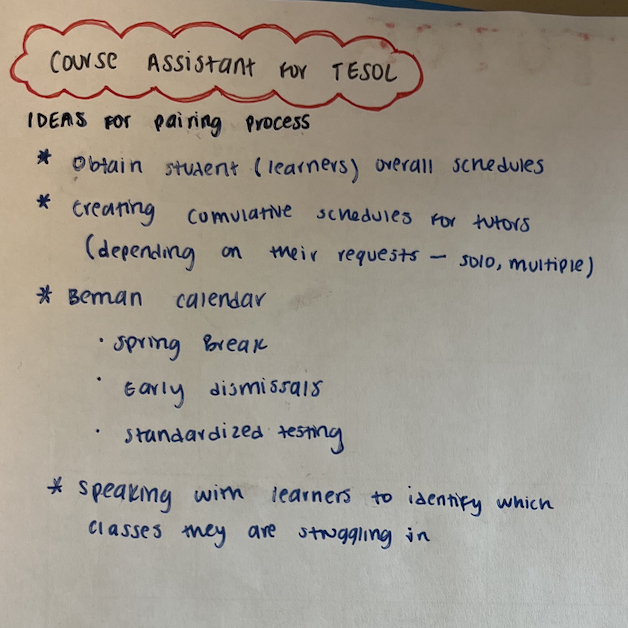 Course Assistant for TESOL
IDEAS for pairing process
* Obtain student (learners) overall schedules
* Creating cumulative schedules for tutors
(depending on their requests – solo, multiple)
* Beman calendar
· Spring Break
· Early dismissals
· Standardized testing
* Speaking with learners to identify which
classes they are struggling in